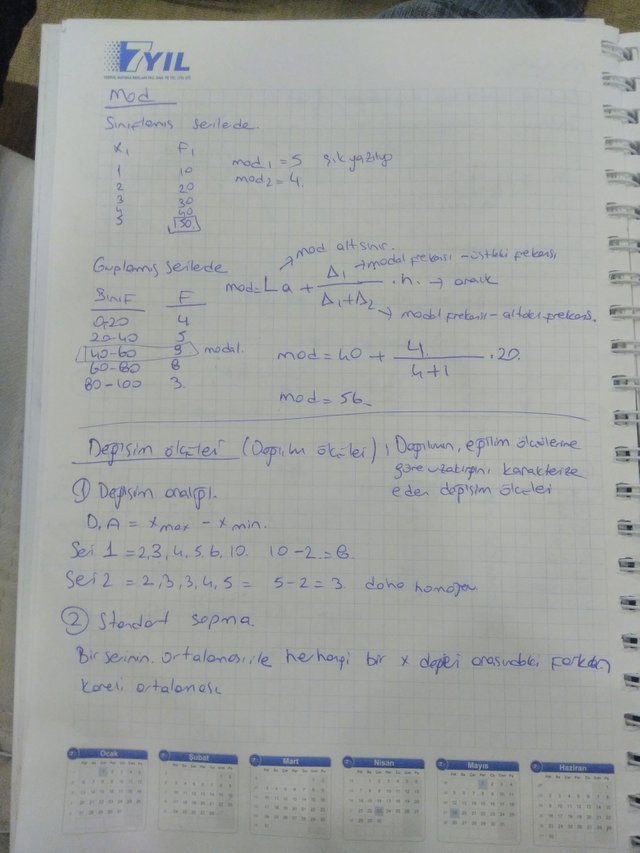 7YIL
Mod
Sınıflamış serilerde.
X₁ F₁
1 10
2 20
3 30
4 40
5 50
mod₁ = 5 şık yazılıp
mod₂ = 4.
Gruplamış serilerde
Sınıf F
0-20 4
20-40 5
40-60 9 modal.
60-80 8
80-100 3.
mod alt sınır.
mod = La + Δ₁ / Δ₁+Δ₂ . h. → aralık
→ modal frekansı - üstteki frekansı
→ modal frekans - alttaki frekans.
mod = 40 + 4 / 4+1 . 20.
mod = 56
Değişim ölçüleri (Dağılım ölçüleri) ; Dağılımın, eğilim ölçülerine
göre uzaklığını karakterize
eden değişim ölçüleri
① Değişim aralığı.
D.A = x max - x min.
Seri 1 = 2,3,4,5,6,10. 10-2 = 8.
Seri 2 = 2,3,3,4,5 = 5-2 = 3. daha homojen
② Standart sapma.
Bir serinin ortalaması ile herhangi bir x değeri arasındaki farkların
kareli ortalaması
Ocak
Şubat
Mart
Nisan
Mayıs
Haziran